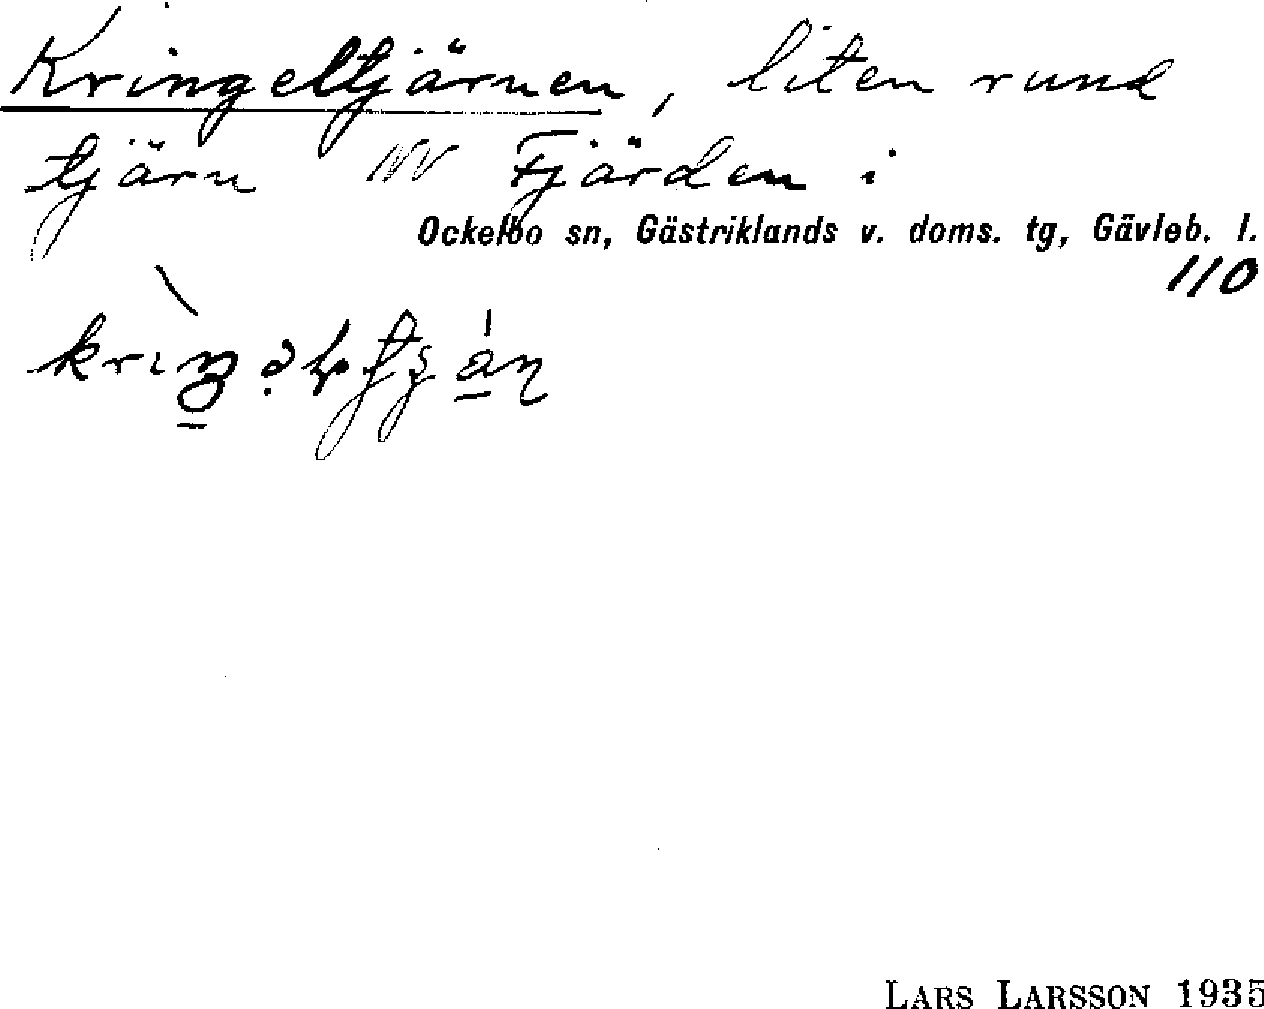 Kringeltjärnen, liten rund
tjärn NV Fjärden i
Ockelbo sn, Gästriklands v. doms. tg, Gävleb. l.
110
LARS LARSSON 1935